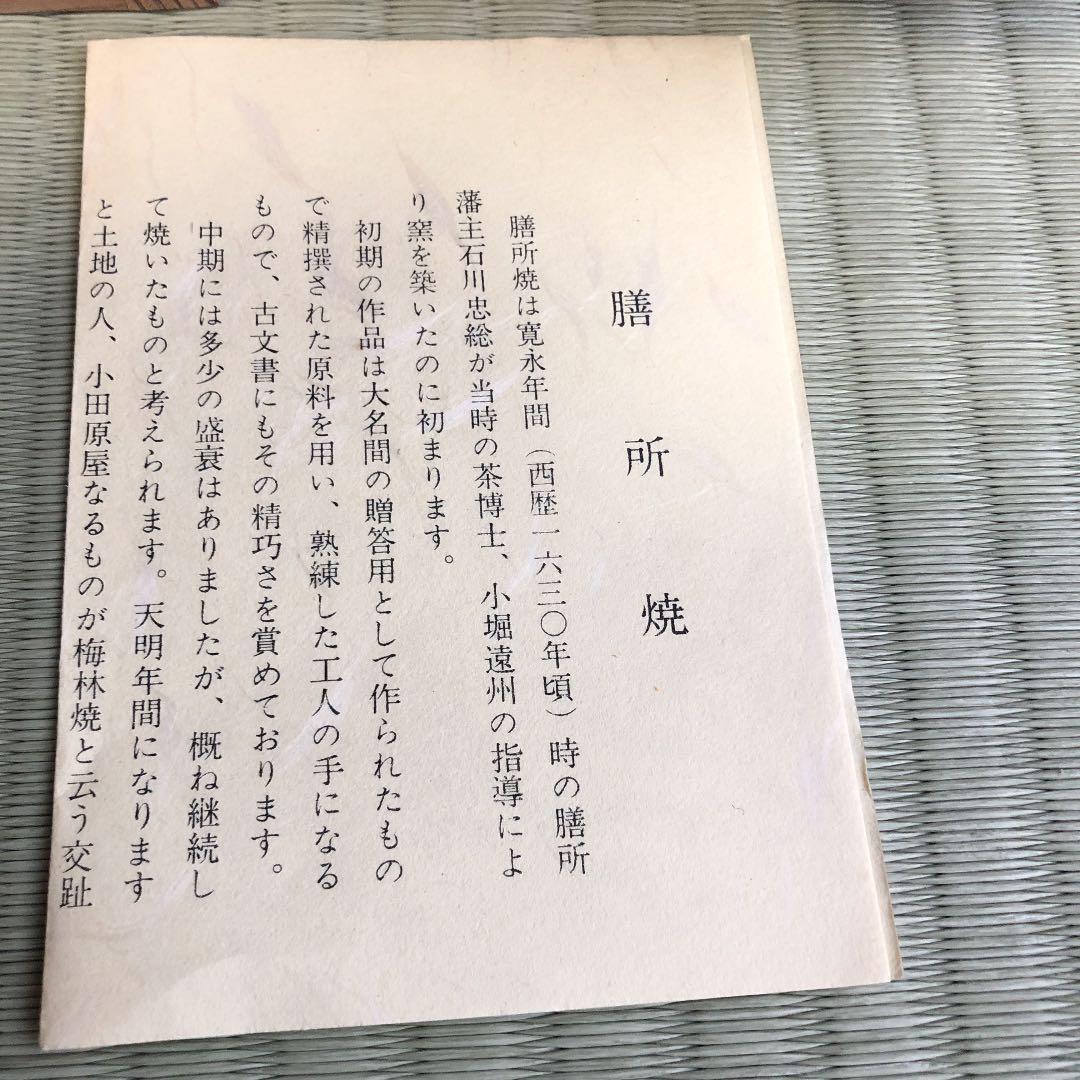 膳所焼
膳所焼は寛永年間（西歴一六三〇年頃）時の膳所
藩主石川忠総が当時の茶博士、小堀遠州の指導によ
り窯を築いたのに初まります。
初期の作品は大名間の贈答用として作られたもの
で精撰された原料を用い、熟練した工人の手になる
もので、古文書にもその精巧さを賞めております。
中期には多少の盛衰はありましたが、概ね継続し
て焼いたものと考えられます。天明年間になります
と土地の人、小田原屋なるものが梅林焼と云う交趾